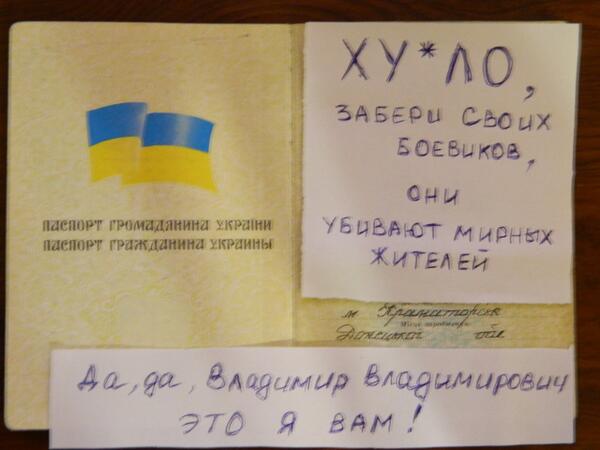 ПАСПОРТ ГРОМАДЯНИНА УКРАЇНИ
ПАСПОРТ ГРАЖДАНИНА УКРАИНЫ
ХУ*ЛО,
ЗАБЕРИ СВОИХ
БОЕВИКОВ,
ОНИ
УБИВАЮТ МИРНЫХ
ЖИТЕЛЕЙ
м Краматорск
Місце народження
Донецкой обл
Да, да, Владимир Владимирович
ЭТО Я ВАМ!